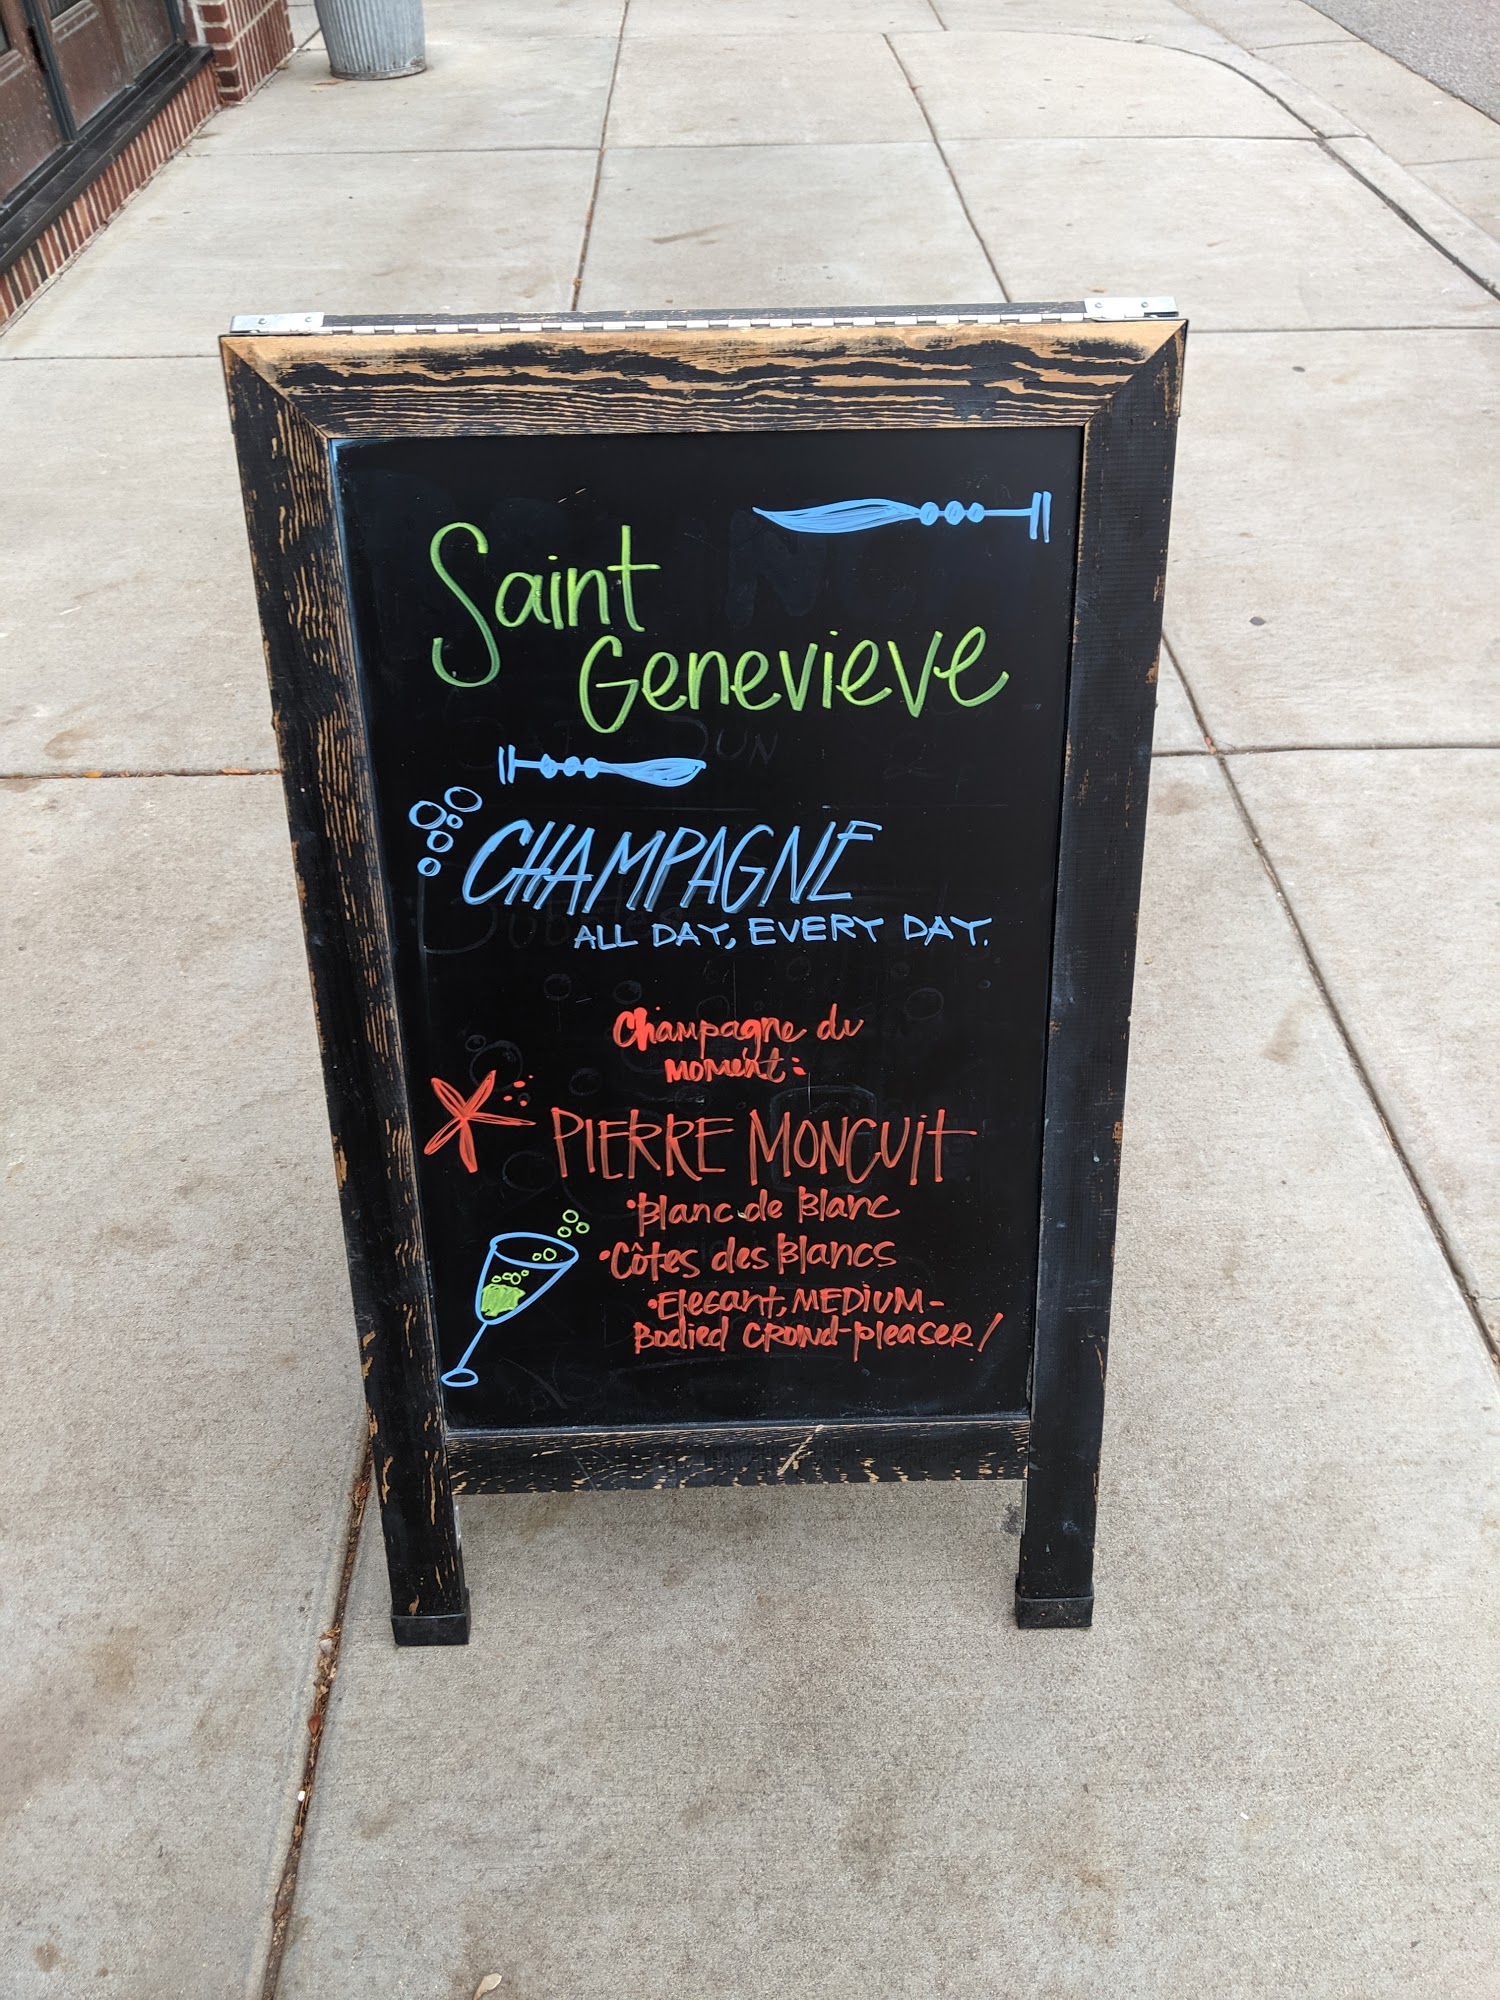 Saint
Genevieve
CHAMPAGNE
ALL DAY, EVERY DAY.
Champagne du
moment:
PIERRE MONCUIt
•Blanc de Blanc
•Côtes des Blancs
•Elegant, MEDiUM-
Bodied CROWd-pleaseR!